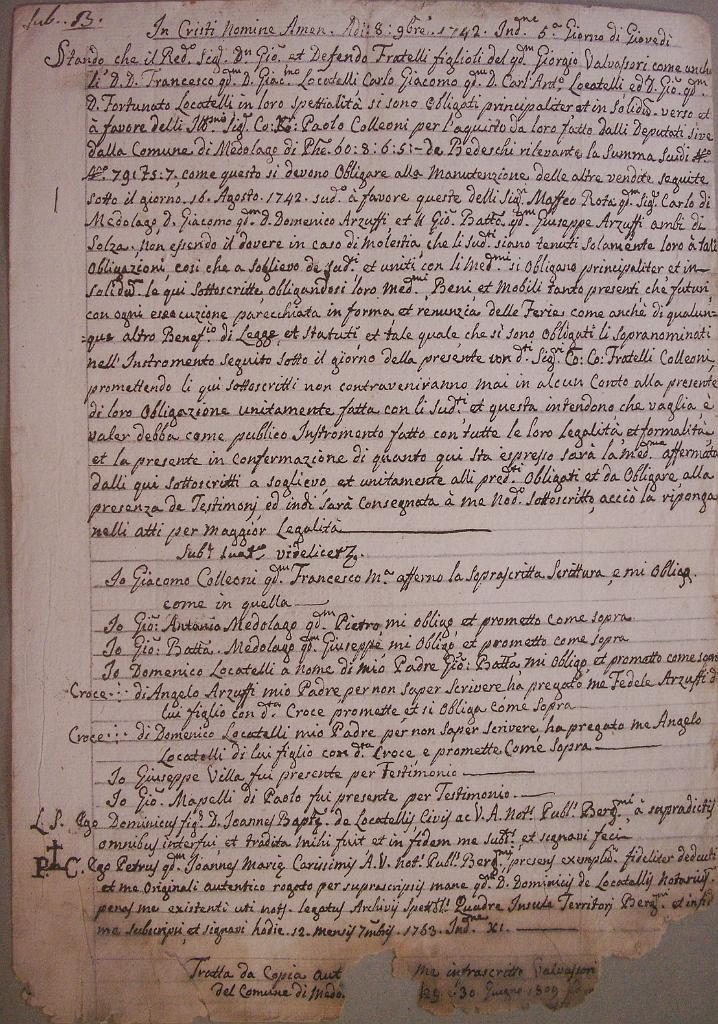 Sub. B.
In Cristi Nomine Amen. Adi: 8: 9bre. 1742. Indne 5a Giorno di Giovedi
Stando che il Red. Sig. Dn Gio. et Defendo Fratelli figlioli del qd. Giorgio Valvassori come anche
li D.D. Francesco qm D. Giacmo Locatelli Carlo Giacomo qm D. Carl'Anto. Locatelli, ed D. Gio. qm
D. Fortunato Locatelli in loro spetialità si sono obligati principaliter et in solidu. verso et
à favore delli Sig. Co: Paolo Colleoni per l'aquisto da loro fatto dalli Deputati sive
dalla Comune di Medolago di Phe. 60: 8: 6: 5: de Bedeschi rilevante la Summa Scudi
79175: 7, come questo si devono Obligare alla Manutenzione delle altre vendite seguite
sotto il giorno. 16. Agosto. 1742. sudo. à favore queste delli Sig. Maffeo Rota qm. Sig. Carlo di
Medolago D. Giacomo qm D. Domenico Arzuffi, et Gio. Batta. qm Giuseppe Arzuffi ambi di
Solza, non essendo il dovere in caso di molestia, che li sudti siano tenuti solamente loro à tale
Obligazioni, così che a soglievo de sudti. et uniti con li medmi si Obligano principaliter et in
solidu. le qui sottoscritte obligandosi loro medmi, Beni et Mobili tanto presenti che futuri,
con ogni essecuzione parecchiata in forma, et renunzia delle Ferie come anche di qualun-
que altro Benefio. di Legge, et statuti et tale quale che si sono Obligati li sopranominati
nell'Instromento seguito sotto il giorno della presente con dti. Sig. Co: Co: Fratelli Colleoni,
promettendo li qui sottoscritti non contraveniranno mai in alcun Conto alla presente
di loro Obligazione unitamente fatta con li sudti. et questa intendono che vaglia, è
valer debba come publico Instromento fatto con tutte le loro legalità, et formalità,
et la presente in Confermazione di quanto qui sta espresso sarà la medma affermata
dalli qui sottoscritti a soglievo, et unitamente alli predti. Obligati et da Obligare, alla
presenza de Testimonj ed indi sarà consegnata à me Nodo. sottoscritto, acciò la riponga
nelli atti per maggior Legalità
Subt. videlicet
Io Giacomo Colleoni qd. Francesco Ma. affermo la soprascritta Scrittura, e mi Obligo
come in quella
Io Gio: Antonio Medolago qm Pietro, mi obligo et prometto come sopra
Io Gio: Batta. Medolago qm Giuseppe mi obligo et prometto come sopra
Io Domenico Locatelli a nome di mio Padre Gio: Batta, mi obligo, et prometto come sopra
Croce: di Angelo Arzuffi mio Padre per non saper scrivere hà pregato me Fedele Arzuffi d
lui figlio con dta Croce promette et si obliga come sopra
Croce: di Domenico Locatelli mio Padre per non saper scrivere, ha pregato me Angelo
Locatelli di lui figlio con dta Croce e promette Come sopra
Io Giuseppe Villa fui presente per Testimonio
Io Gio. Mapelli di Paolo fui presente per Testimonio.
L. S. Ego Dominicus fiq. D. Joannes Baptę. de Locatellis Civis ac V. A. Not. Publ. Bergmi, à supradictis
omnibus interfui, et tradita mihi fuit et in fidem me subt. et segnavi feci
P. C. Ego Petrus qm. Joannes Marię Carissimis A. V. not. Publ. Bergmi, presens exemplu. fideliter deduxi
et me Originali autentico rogato per suprascripsis mane qd. D. Dominicus de Locatellis Notarius,
penes me existenti uti not. legatus Archivij Quadre Insule Territorj Bergmi. et in fid
me subscripsi, et signavi hodie. 12. mensis 7mbris 1763. Indne XI.
Tratta da Copia aut me infrascritto Valvassori
del Comune di Medo. 30 Giugno 1809